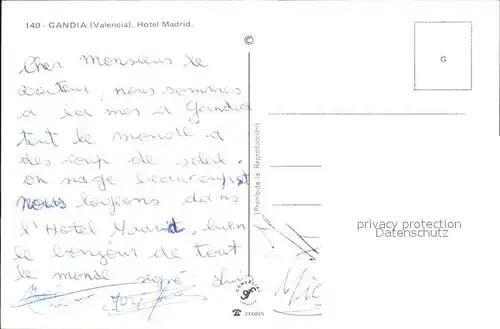 140 - GANDIA (Valencia). Hotel Madrid.
©
G
Cher Monsieur le
Docteur, nous sommes
a la mer a Gandia
tout le monde a
des coup de soleil.
on nage beaucoup et
nous logeons dans
l'Hotel Madrid, bien
le bonjour de tout
le monde signé
(Prohibida la Reproducción)
privacy protection
Datenschutz
276025